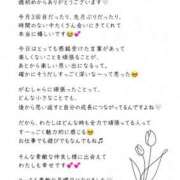 週初めからありがとうございます🤍
今月3回目だったり、先月ぶりだったり、
時間のない中たくさん会いにきてくれて
本当に嬉しいです😊💕
今日はとっても感銘受けた言葉があって
楽しくないことを頑張ることが、
あとから思い返すと楽しい思い出になるって。
確かにそうだしすっごく深いな〜って思った
がむしゃらに頑張ってたことは、
どんな小さなことでも、
後から思い返すと自分の成長につながってるんですよね🤍
だから、わたしはどんな時も全力で頑張ってる人って
すーっごく魅力的に感じる😊
お仕事でも遊びでもなんでも💕
そんな素敵な時良し様に出会えて
わたしも幸せです💕